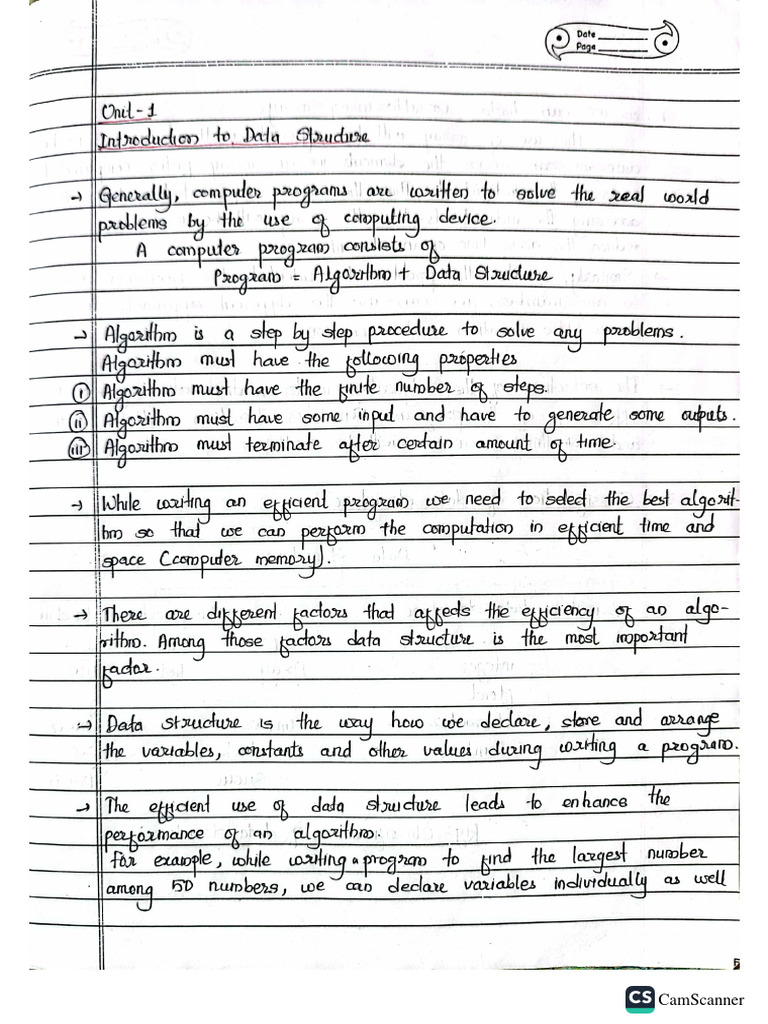 Date
Page
Unit-1
Introduction to Data Structure
→ Generally, computer programs are written to solve the real world
problems by the use of computing device.
A computer program consists of
Program = Algorithm + Data Structure
→ Algorithm is a step by step procedure to solve any problems.
Algorithm must have the following properties
(i) Algorithm must have the finite number of steps.
(ii) Algorithm must have some input and have to generate some outputs.
(iii) Algorithm must terminate after certain amount of time.
→ While writing an efficient program we need to select the best algorit-
hm so that we can perform the computation in efficient time and
space (computer memory).
→ There are different factors that affects the efficiency of an algo-
rithm. Among those factors data structure is the most important
factor.
→ Data structure is the way how we declare, store and arrange
the variables, constants and other values during writing a program.
→ The efficient use of data structure leads to enhance the
performance of an algorithm.
For example, while writing a program to find the largest number
among 50 numbers, we can declare variables individually as well
CS CamScanner